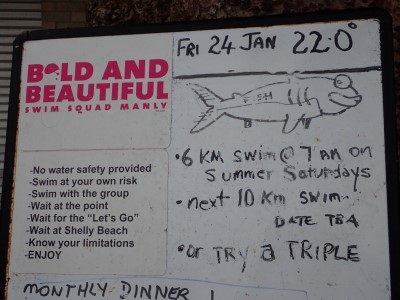 FRI 24 JAN 22.0°
BOLD AND
BEAUTIFUL
SWIM SQUAD MANLY
FISH
-No water safety provided
-Swim at your own risk
-Swim with the group
-Wait at the point
-Wait for the “Let's Go”
-Wait at Shelly Beach
-Know your limitations
-ENJOY
•6 KM SWIM @ 7 AM on
Summer Saturdays
•next 10 Km swim
DATE TBA
•or TRY a TRIPLE
MONTHLY DINNER